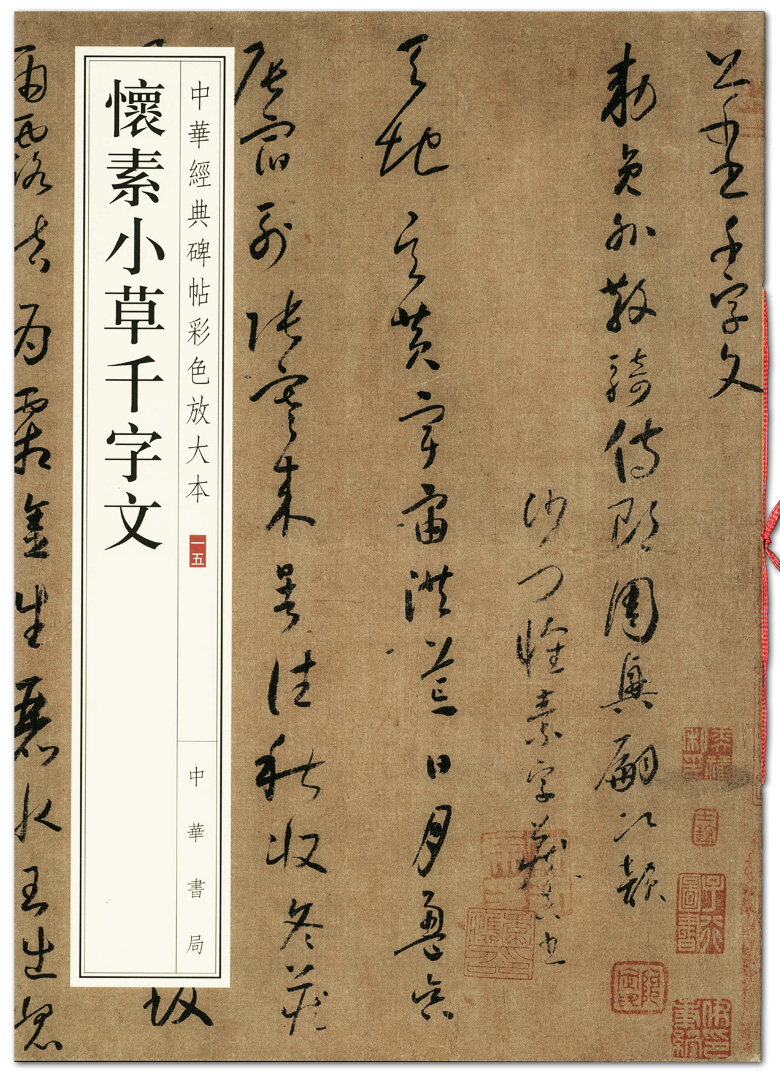 懷素小草千字文
中華經典碑帖彩色放大本
一五
中華書局
千字文
敕員外散騎侍郎周興嗣次韻
沙門懷素字藏真書
天地玄黃宇宙洪荒日月盈昃
辰宿列張寒來暑往秋收冬藏
致
雨露結為霜金生麗水玉出崑